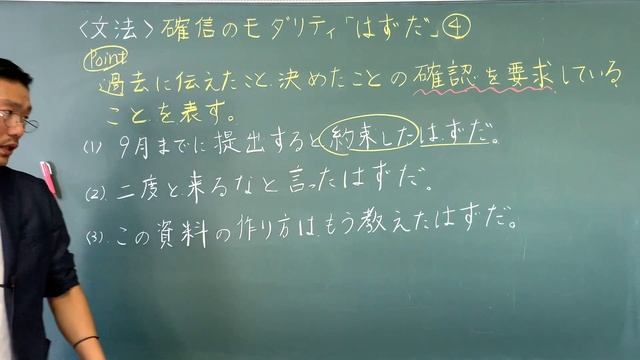 〈文法〉確信のモダリティ「はずだ」④
Point
過去に伝えたこと、決めたことの確認を要求している
ことを表す。
(1) 9月までに提出すると約束したはずだ。
(2). 二度と来るなと言ったはずだ。
(3). この資料の作り方は、もう教えたはずだ。